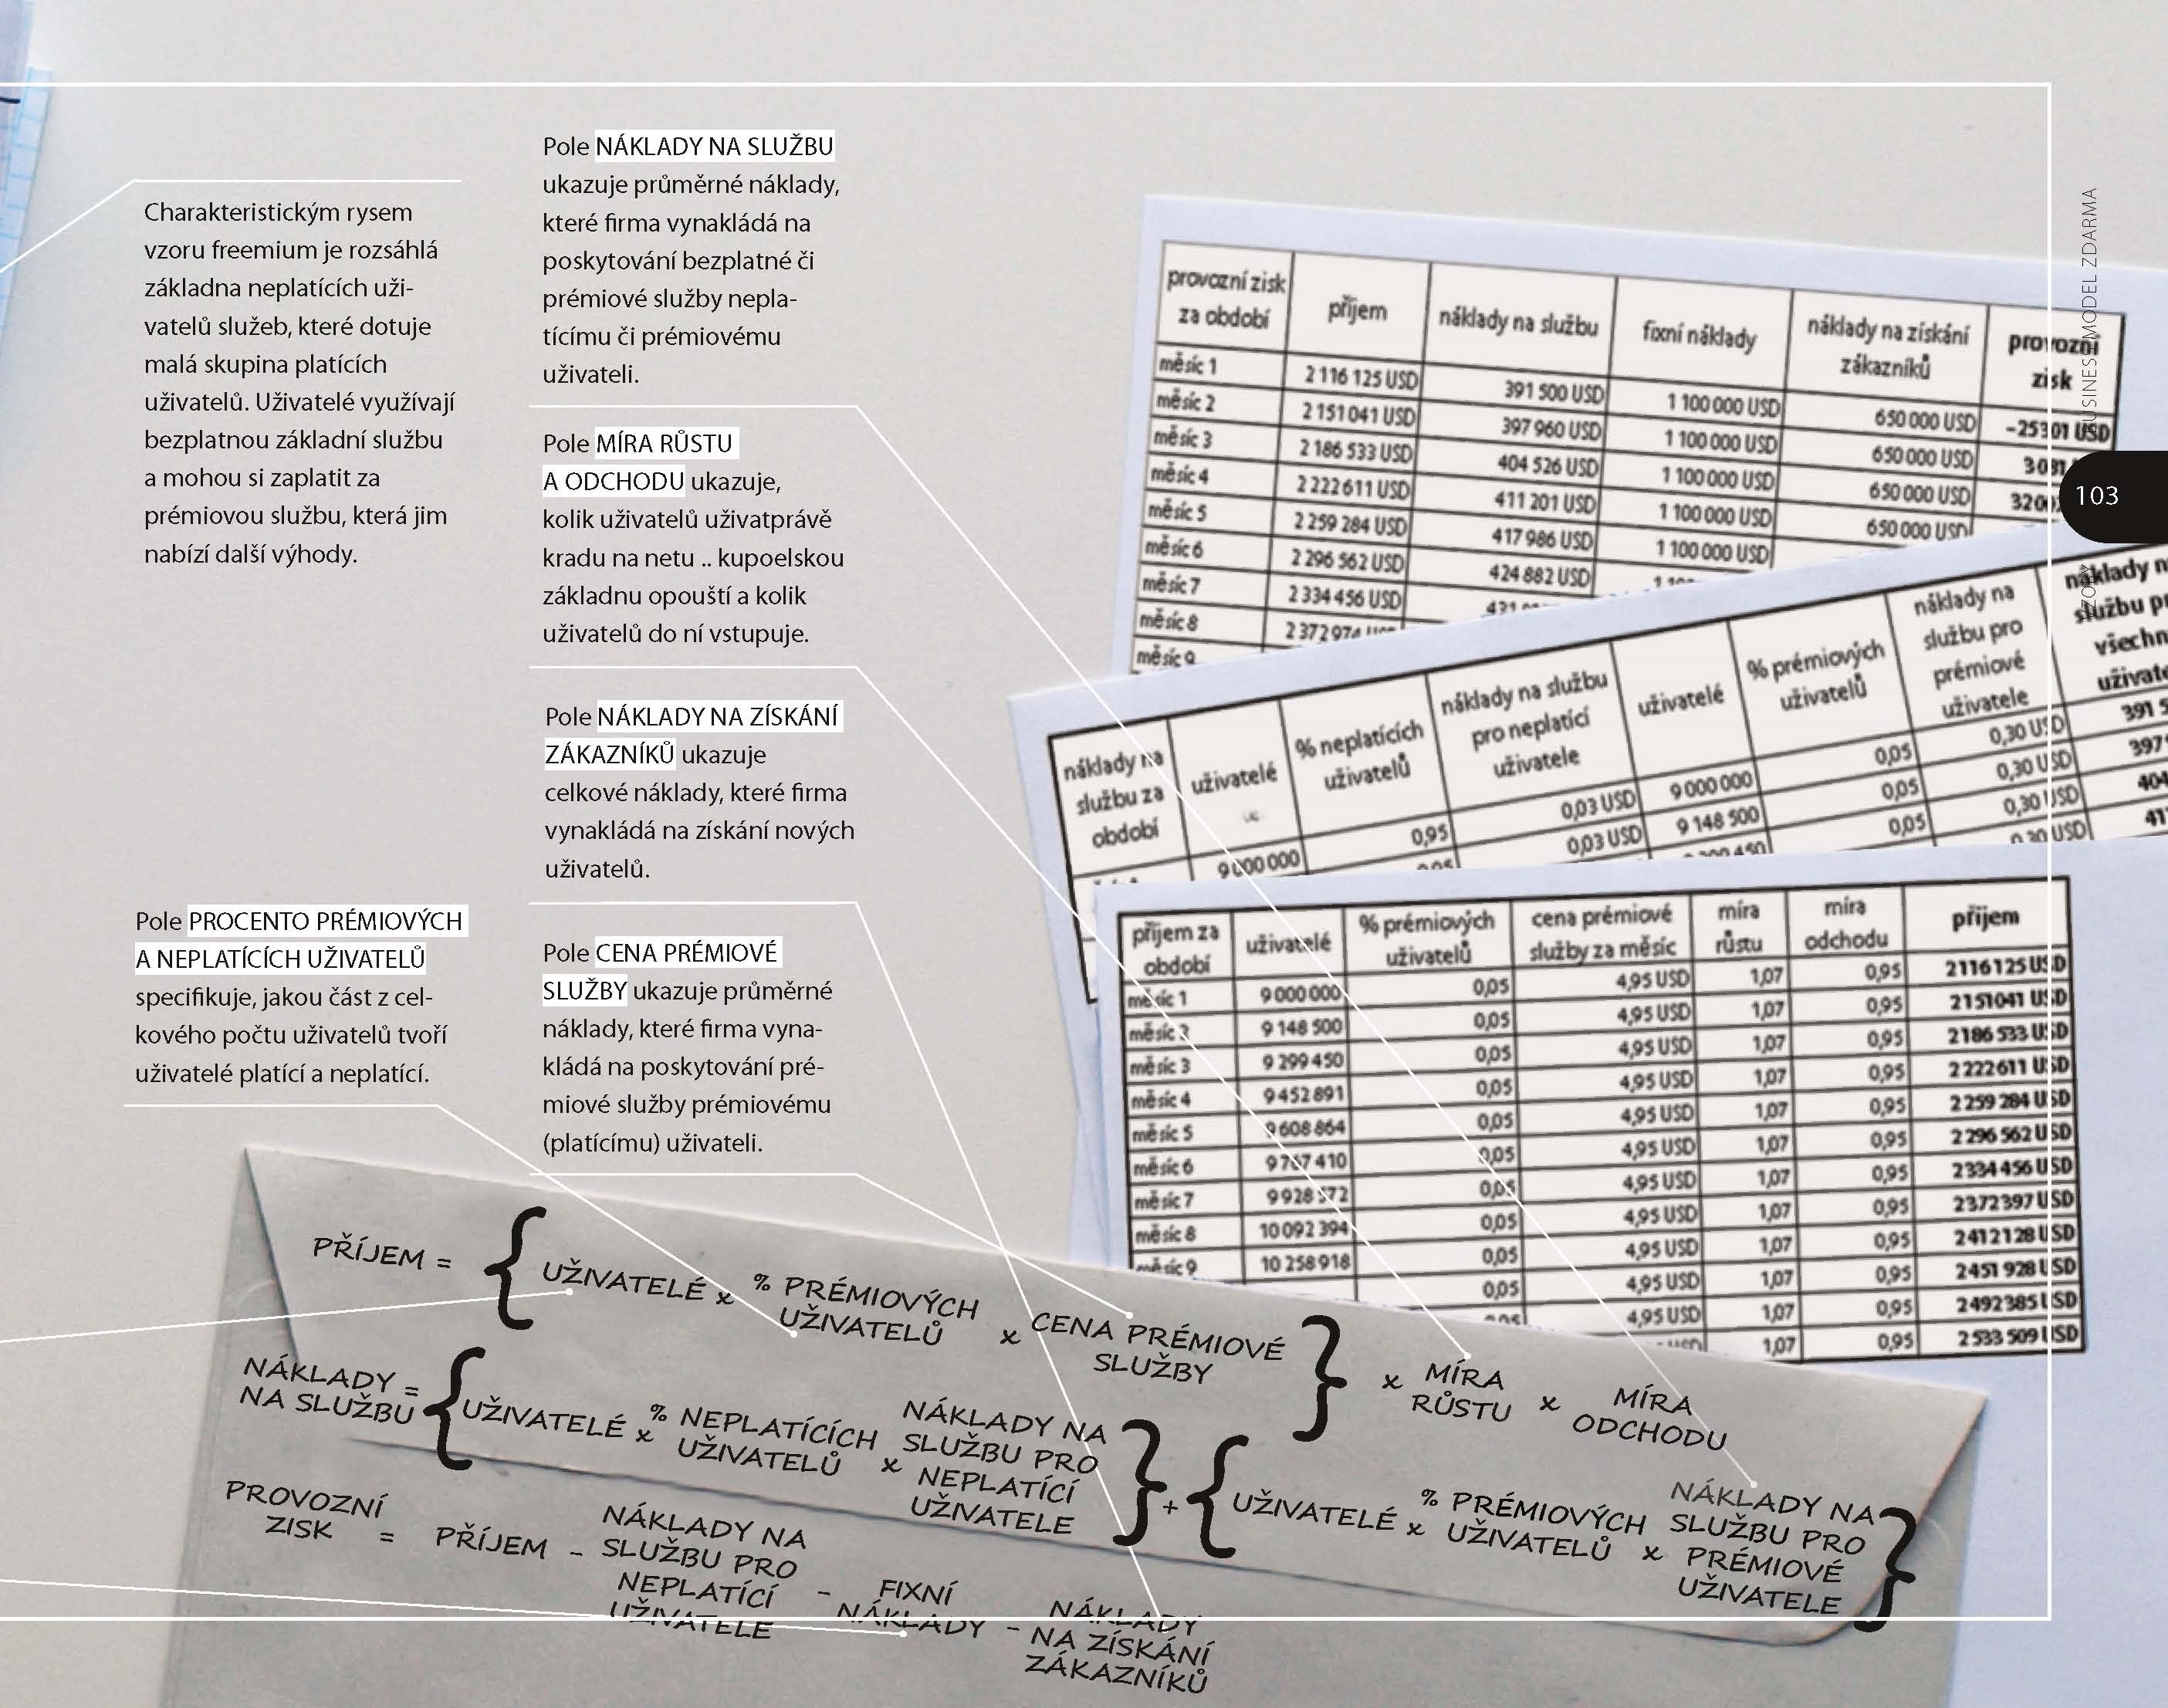 Charakteristickým rysem
vzoru freemium je rozsáhlá
základna neplatících uži-
vatelů služeb, které dotuje
malá skupina platících
uživatelů. Uživatelé využívají
bezplatnou základní službu
a mohou si zaplatit za
prémiovou službu, která jim
nabízí další výhody.
Pole PROCENTO PRÉMIOVÝCH
A NEPLATÍCÍCH UŽIVATELŮ
specifikuje, jakou část z cel-
kového počtu uživatelů tvoří
uživatelé platící a neplatící.
Pole NÁKLADY NA SLUŽBU
ukazuje průměrné náklady,
které firma vynakládá na
poskytování bezplatné či
prémiové služby nepla-
tícímu či prémiovému
uživateli.
Pole MÍRA RŮSTU
A ODCHODU ukazuje,
kolik uživatelů uživatprávě
kradu na netu .. kupoelskou
základnu opouští a kolik
uživatelů do ní vstupuje.
Pole NÁKLADY NA ZÍSKÁNÍ
ZÁKAZNÍKŮ ukazuje
celkové náklady, které firma
vynakládá na získání nových
uživatelů.
Pole CENA PRÉMIOVÉ
SLUŽBY ukazuje průměrné
náklady, které firma vyna-
kládá na poskytování pré-
miové služby prémiovému
(platícímu) uživateli.
provozní zisk za období příjem náklady na službu fixní náklady náklady na získání zákazníků provozní zisk
měsíc 1 2 116 125 USD 391 500 USD 1 100 000 USD 650 000 USD -25301 USD
měsíc 2 2 151041 USD 397 960 USD 1 100 000 USD 650 000 USD
měsíc 3 2 186 533 USD 404 526 USD 1 100 000 USD 650 000 USD
měsíc 4 2 222611 USD 411 201 USD 1 100 000 USD 650 000 USD
měsíc 5 2 259 284 USD 417 986 USD 1 100 000 USD
měsíc 6 2 296 562 USD 424 882 USD
měsíc 7 2 334 456 USD
měsíc 8 2 372 974
měsíc 9
náklady na službu za období uživatelé % neplatících uživatelů náklady na službu pro neplatící uživatele uživatelé % prémiových uživatelů náklady na službu pro prémiové uživatele
9 000 000 0,95 0,03 USD 9 000 000 0,05 0,30 USD
0,03 USD 9 148 500 0,05 0,30 USD
0,05 0,30 USD
příjem za období uživatelé % prémiových uživatelů cena prémiové služby za měsíc míra růstu míra odchodu příjem
měsíc 1 9 000 000 0,05 4,95 USD 1,07 0,95 2116125 USD
měsíc 2 9 148 500 0,05 4,95 USD 1,07 0,95 2151041 USD
měsíc 3 9 299 450 0,05 4,95 USD 1,07 0,95 2186 533 USD
měsíc 4 9452 891 0,05 4,95 USD 1,07 0,95 2 222611 USD
měsíc 5 9 608 864 0,05 4,95 USD 1,07 0,95 2 259 284 USD
měsíc 6 9 767 410 0,05 4,95 USD 1,07 0,95 2 296 562 USD
měsíc 7 9 928 572 0,05 4,95 USD 1,07 0,95 2334 456 USD
měsíc 8 10 092 394 0,05 4,95 USD 1,07 0,95 2372397 USD
měsíc 9 10 258 918 0,05 4,95 USD 1,07 0,95 2412128 USD
0,05 4,95 USD 1,07 0,95 2451 928 USD
4,95 USD 1,07 0,95 2492385 USD
1,07 0,95 2 533 509 USD
PŘÍJEM = { UŽIVATELÉ x % PRÉMIOVÝCH UŽIVATELŮ x CENA PRÉMIOVÉ SLUŽBY } x MÍRA RŮSTU x MÍRA ODCHODU
NÁKLADY NA SLUŽBU = { UŽIVATELÉ x % NEPLATÍCÍCH UŽIVATELŮ x NÁKLADY NA SLUŽBU PRO NEPLATÍCÍ UŽIVATELE } + { UŽIVATELÉ x % PRÉMIOVÝCH UŽIVATELŮ x NÁKLADY NA SLUŽBU PRO PRÉMIOVÉ UŽIVATELE }
PROVOZNÍ ZISK = PŘÍJEM - NÁKLADY NA SLUŽBU PRO NEPLATÍCÍ UŽIVATELE - FIXNÍ NÁKLADY - NÁKLADY NA ZÍSKÁNÍ ZÁKAZNÍKŮ
BUSINESS MODEL ZDARMA
103